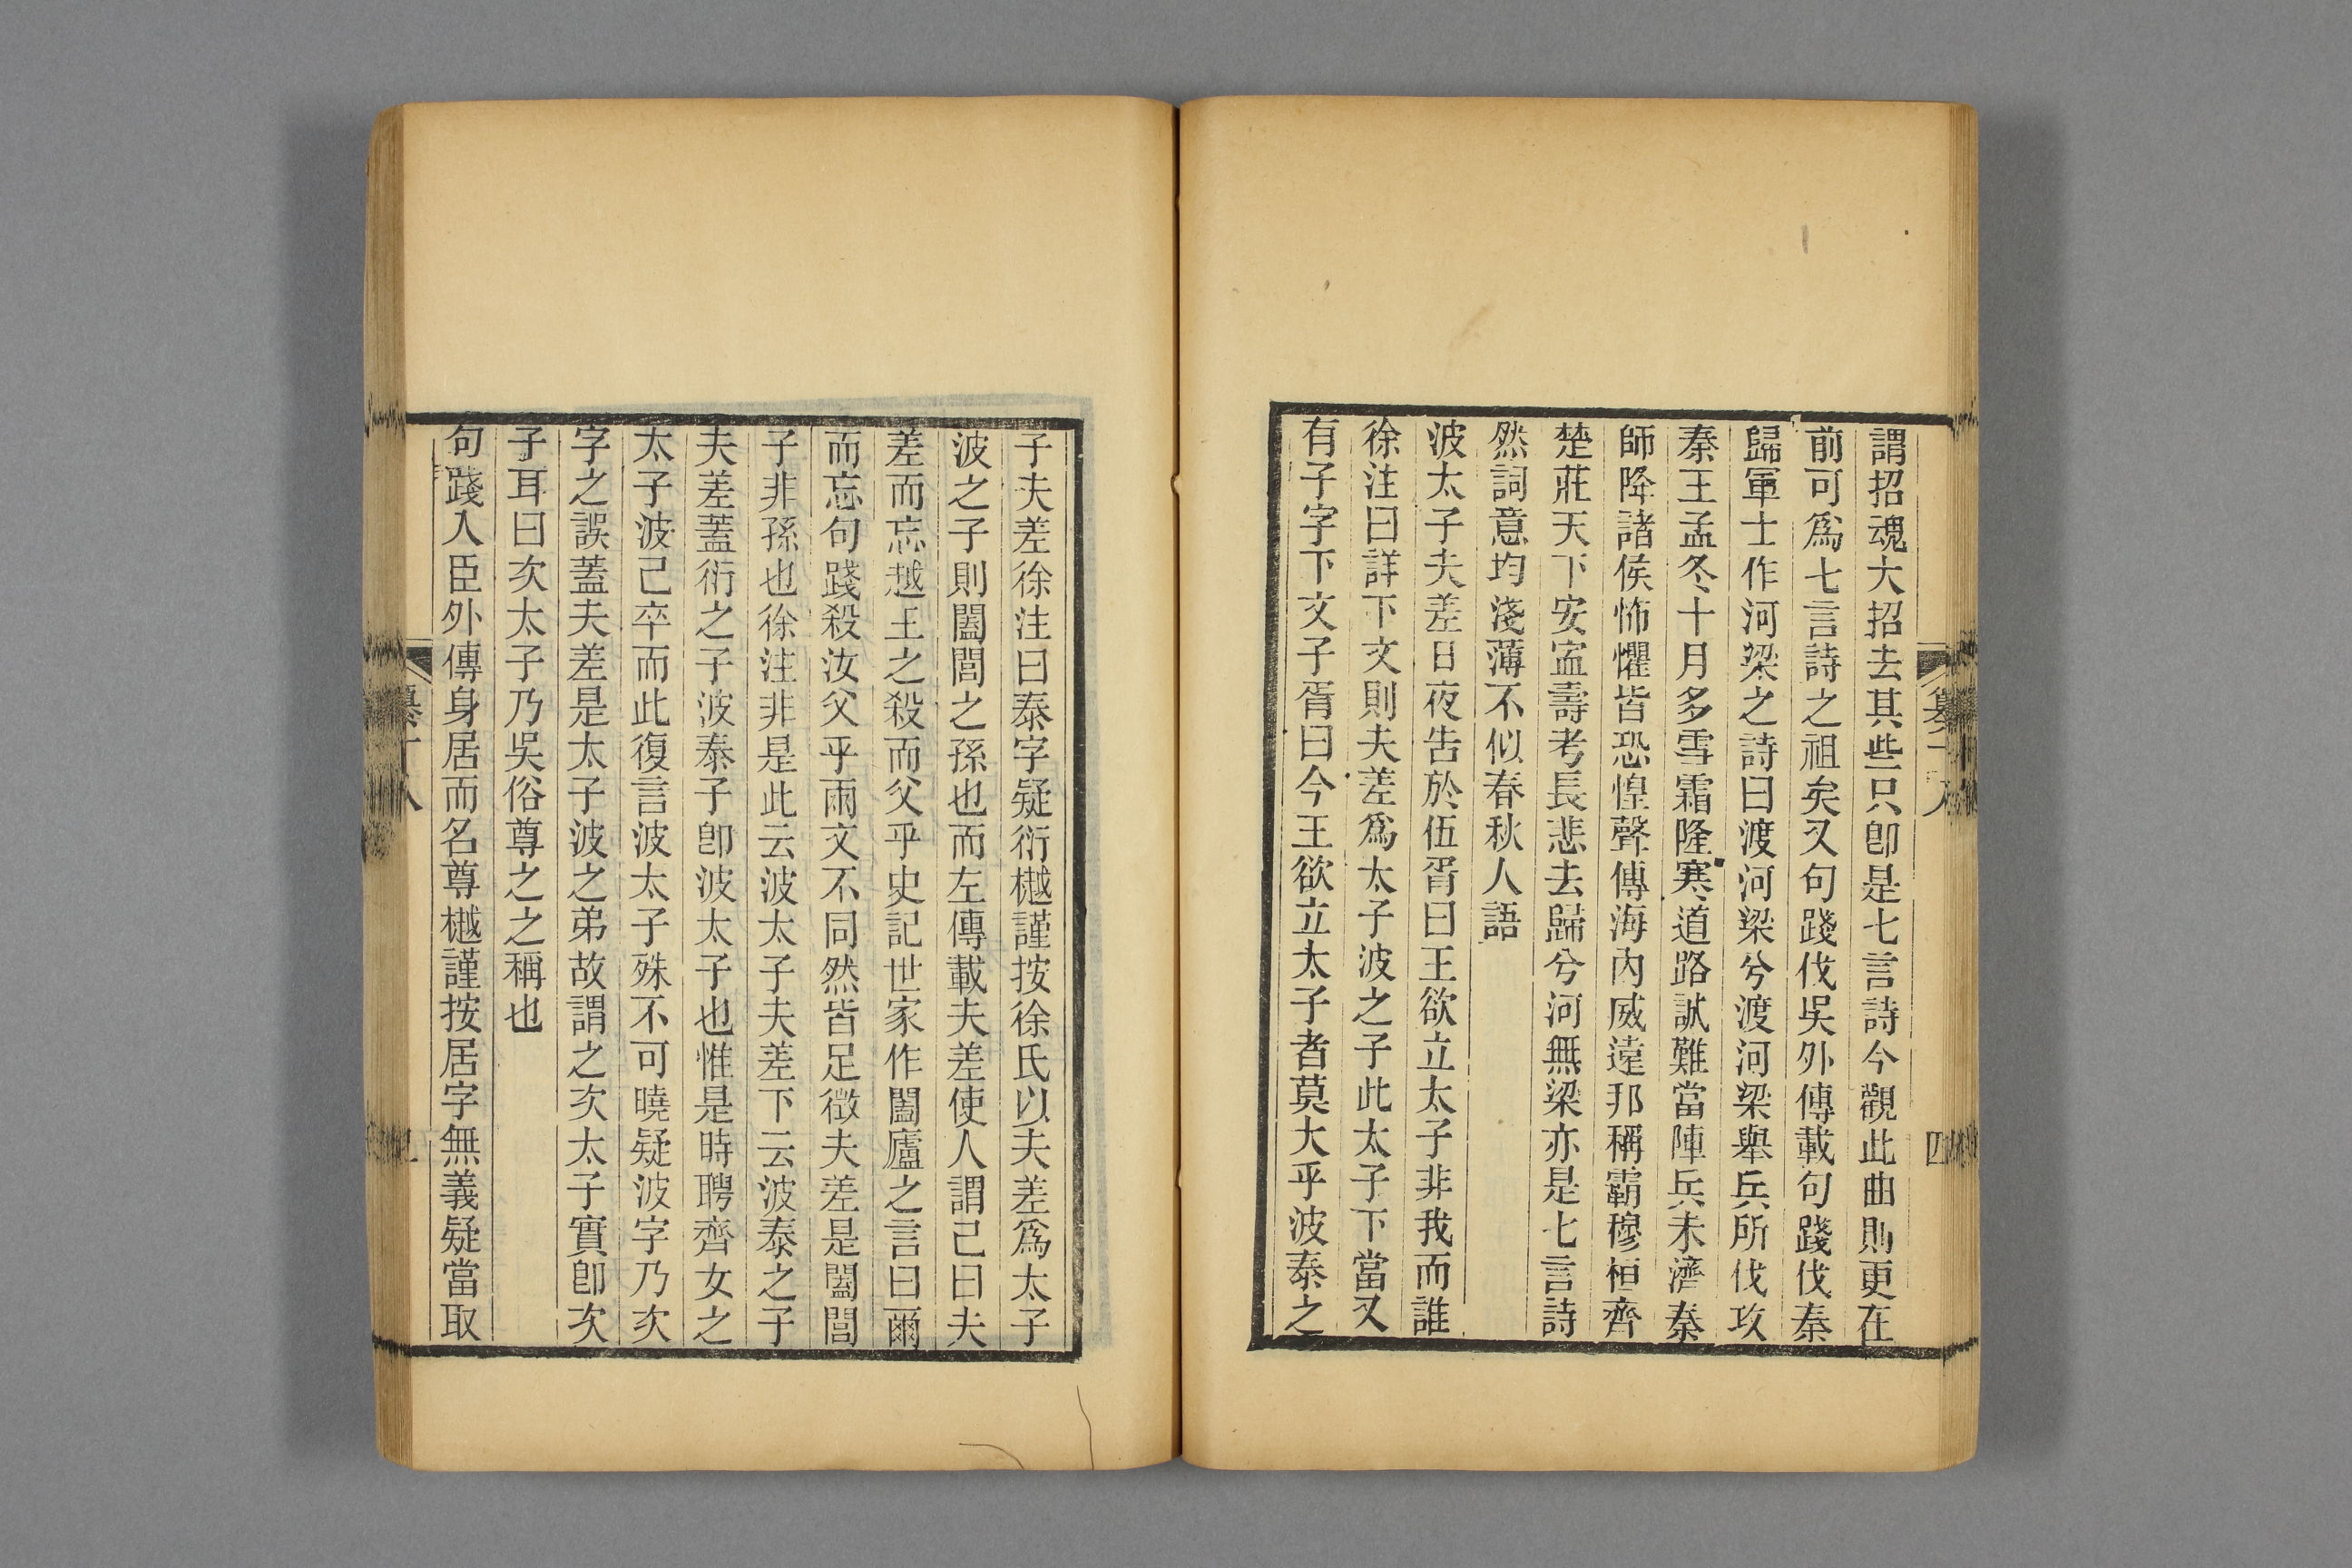 謂招魂大招去其些只卽是七言詩今觀此曲則更在
前可爲七言詩之祖矣又句踐伐吳外傳載句踐伐秦
歸軍士作河梁之詩曰渡河梁兮渡河梁舉兵所伐攻
秦王孟冬十月多雪霜隆寒道路誠難當陣兵未濟秦
師降諸侯怖懼皆恐惶聲傳海內威遠邦稱霸穆桓齊
楚莊天下安寍壽考長悲去歸兮河無梁亦是七言詩
然詞意均淺薄不似春秋人語
波太子夫差日夜告於伍胥曰王欲立太子非我而誰
徐注曰詳下文則夫差爲太子波之子此太子下當又
有子字下文子胥曰今王欲立太子者莫大乎波秦之
子夫差徐注曰泰字疑衍樾謹按徐氏以夫差爲太子
波之子則闔閭之孫也而左傳載夫差使人謂己曰夫
差而忘越王之殺而父乎史記世家作闔廬之言曰爾
而忘句踐殺汝父乎兩文不同然皆足徵夫差是闔閭
子非孫也徐注非是此云波太子夫差下云波泰之子
夫差蓋衍之子波泰子卽波太子也惟是時聘齊女之
太子波己卒而此復言波太子殊不可曉疑波字乃次
字之誤蓋夫差是太子波之弟故謂之次太子實卽次
子耳曰次太子乃吳俗尊之之稱也
句踐入臣外傳身居而名尊樾謹按居字無義疑當取